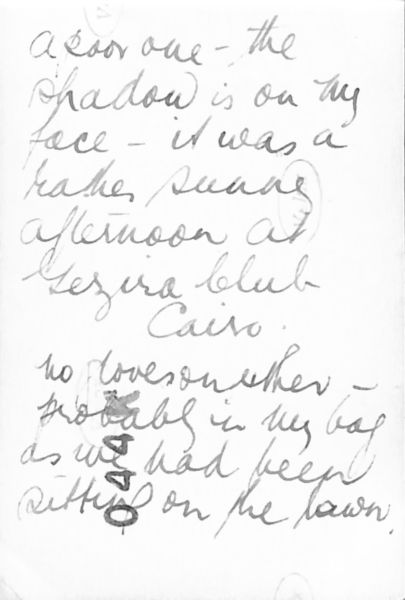 a poor one - the
shadow is on my
face - it was a
rather sunny
afternoon at
Gezira Club
Cairo.
no gloves on either -
probably in my bag
as we had been
sitting on the lawn.
044